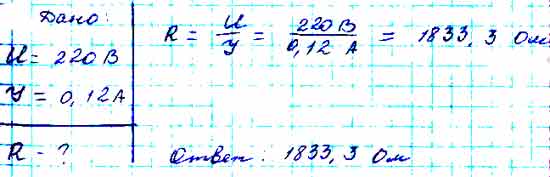 Дано:
U = 220 В
У = 0,12 А
R - ?
R = U/У = 220 В/0,12 А = 1833,3 Ом
Ответ: 1833,3 Ом